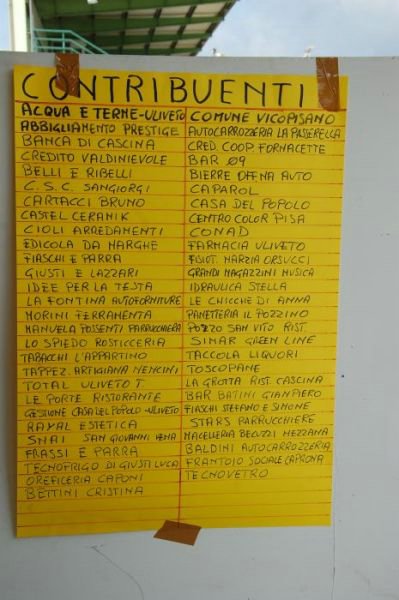 CONTRIBUENTI
ACQUA E TERME-ULIVETO
ABBIGLIAMENTO PRESTIGE
BANCA DI CASCINA
CREDITO VALDINIEVOLE
BELLI E RIBELLI
C.S.C. SANGIORGI
CARTACCI BRUNO
CASTEL CERAMIK
CIOLI ARREDAMENTI
EDICOLA DA MARGHE
FIASCHI E PARRA
GIUSTI E LAZZARI
IDEE PER LA TESTA
LA FONTINA AUTOFORNITURE
MORINI FERRAMENTA
MANUELA POSSENTI PARRUCCHIERA
LO SPIEDO ROSTICCERIA
TABACCHI L'APPARTINO
TAPPEZ. ARTIGIANA NENCINI
TOTAL ULIVETO T.
LE PORTE RISTORANTE
GESTIONE CASA DEL POPOLO-ULIVETO
RAYAL ESTETICA
SNAI SAN GIOVANNI
FRASSI E PARRA
TECNOFRIGO DI GIUSTI LUCA
OREFICERIA CAPONI
BETTINI CRISTINA
COMUNE VICOPISANO
AUTOCARROZZERIA LA PASSERELLA
CRED. COOP. FORNACETTE
BAR 09
BIERRE OFFNA AUTO
CAPAROL
CASA DEL POPOLO
CENTRO COLOR PISA
CONAD
FARMACIA ULIVETO
FISIOT. MARZIA ORSUCCI
GRANDI MAGAZZINI MUSICA
IDRAULICA STELLA
LE CHICCHE DI ANNA
PANETTERIA IL POZZINO
POZZO SAN VITO RIST.
SIMAR GREEN LINE
TACCOLA LIQUORI
TOSCOPANE
LA GROTTA RIST. CASCINA
BAR BATINI GIANPIERO
FIASCHI STEFANO E SIMONE
STARS PARRUCCHIERE
MACELLERIA BECUZZI MEZZANA
BALDINI AUTOCARROZZERIA
FRANTOIO SOCIALE CAPRONA
TECNOVETRO